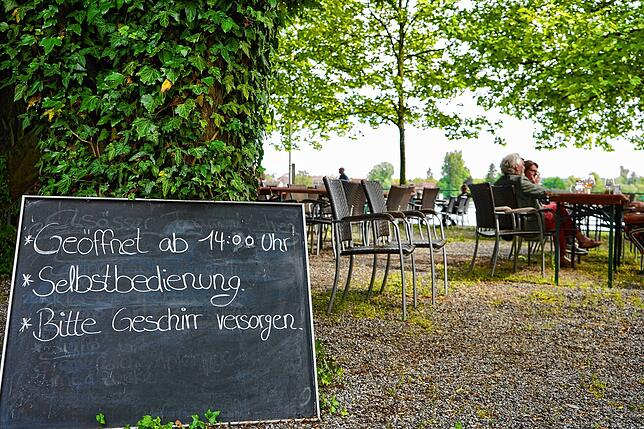 *Geöffnet ab 14:00 Uhr
*Selbstbedienung.
*Bitte Geschirr versorgen.